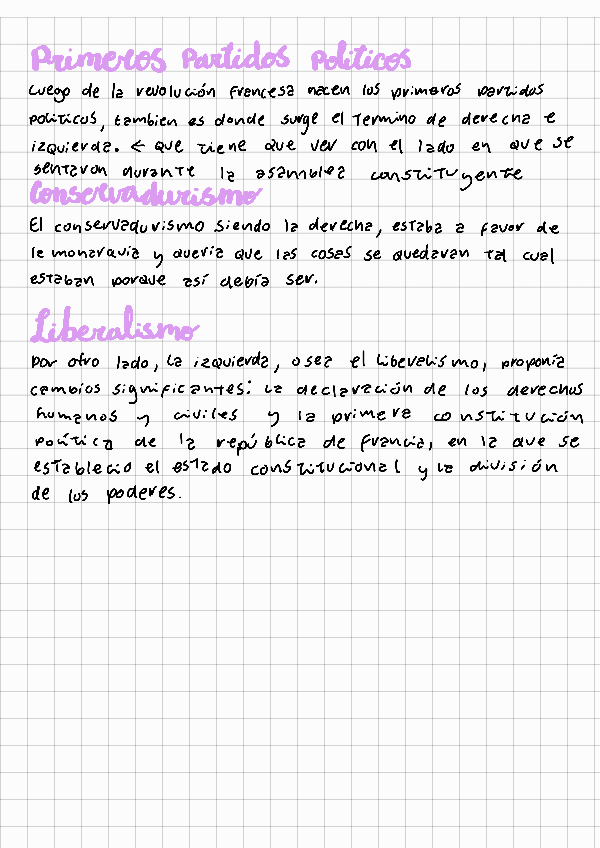 Primeros Partidos Politicos
Luego de la revolución francesa nacen los primeros partidos
politicos, tambien es donde surge el termino de derecha e
izquierda. ← que tiene que ver con el lado en que se
sentaron durante la asamblea constituyente
Conservadurismo
El conservadurismo siendo la derecha, estaba a favor de
la monarquía y quería que las cosas se quedaran tal cual
estaban porque así debía ser.
Liberalismo
Por otro lado, la izquierda, o sea el liberalismo, proponía
cambios significantes: la declaración de los derechos
humanos y civiles y la primera constitución
política de la república de francia, en la que se
establecio el estado constitucional y la división
de los poderes.